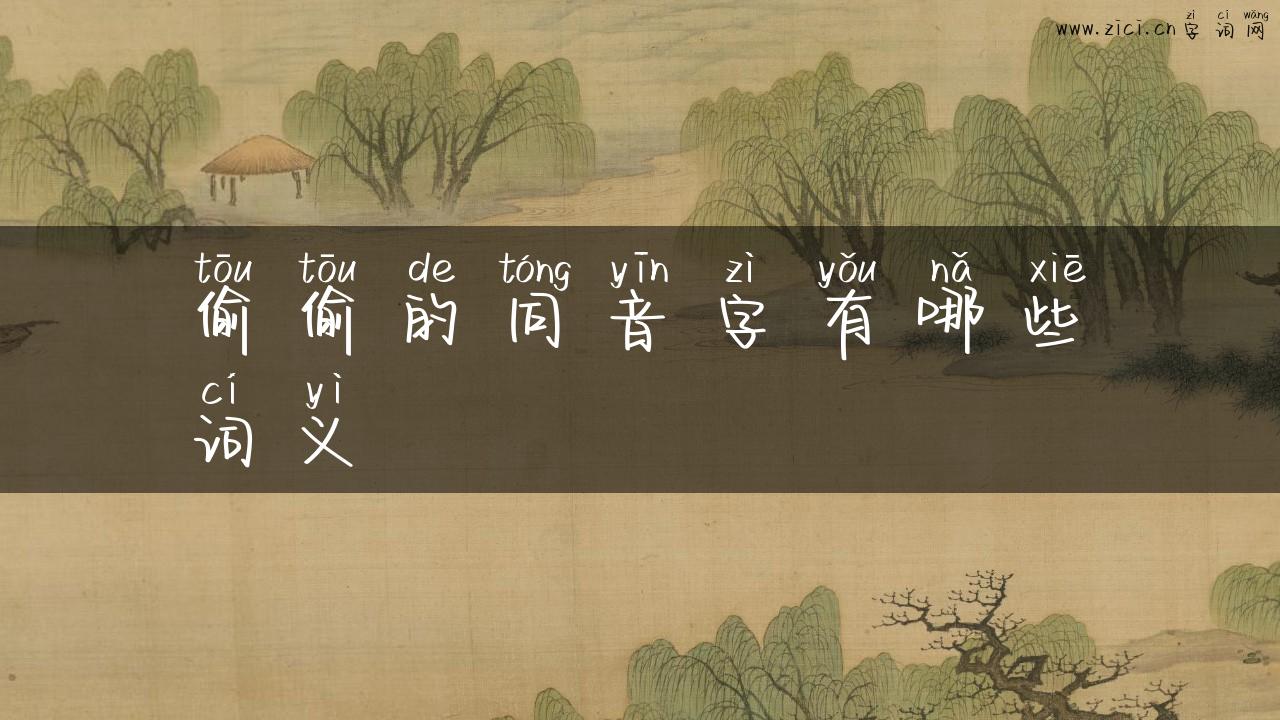 zì cí wǎng
www.zici.cn 字 词 网
tōu tōu de tóng yīn zì yǒu nǎ xiē
偷 偷 的 同 音 字 有 哪 些
cí yì
词 义